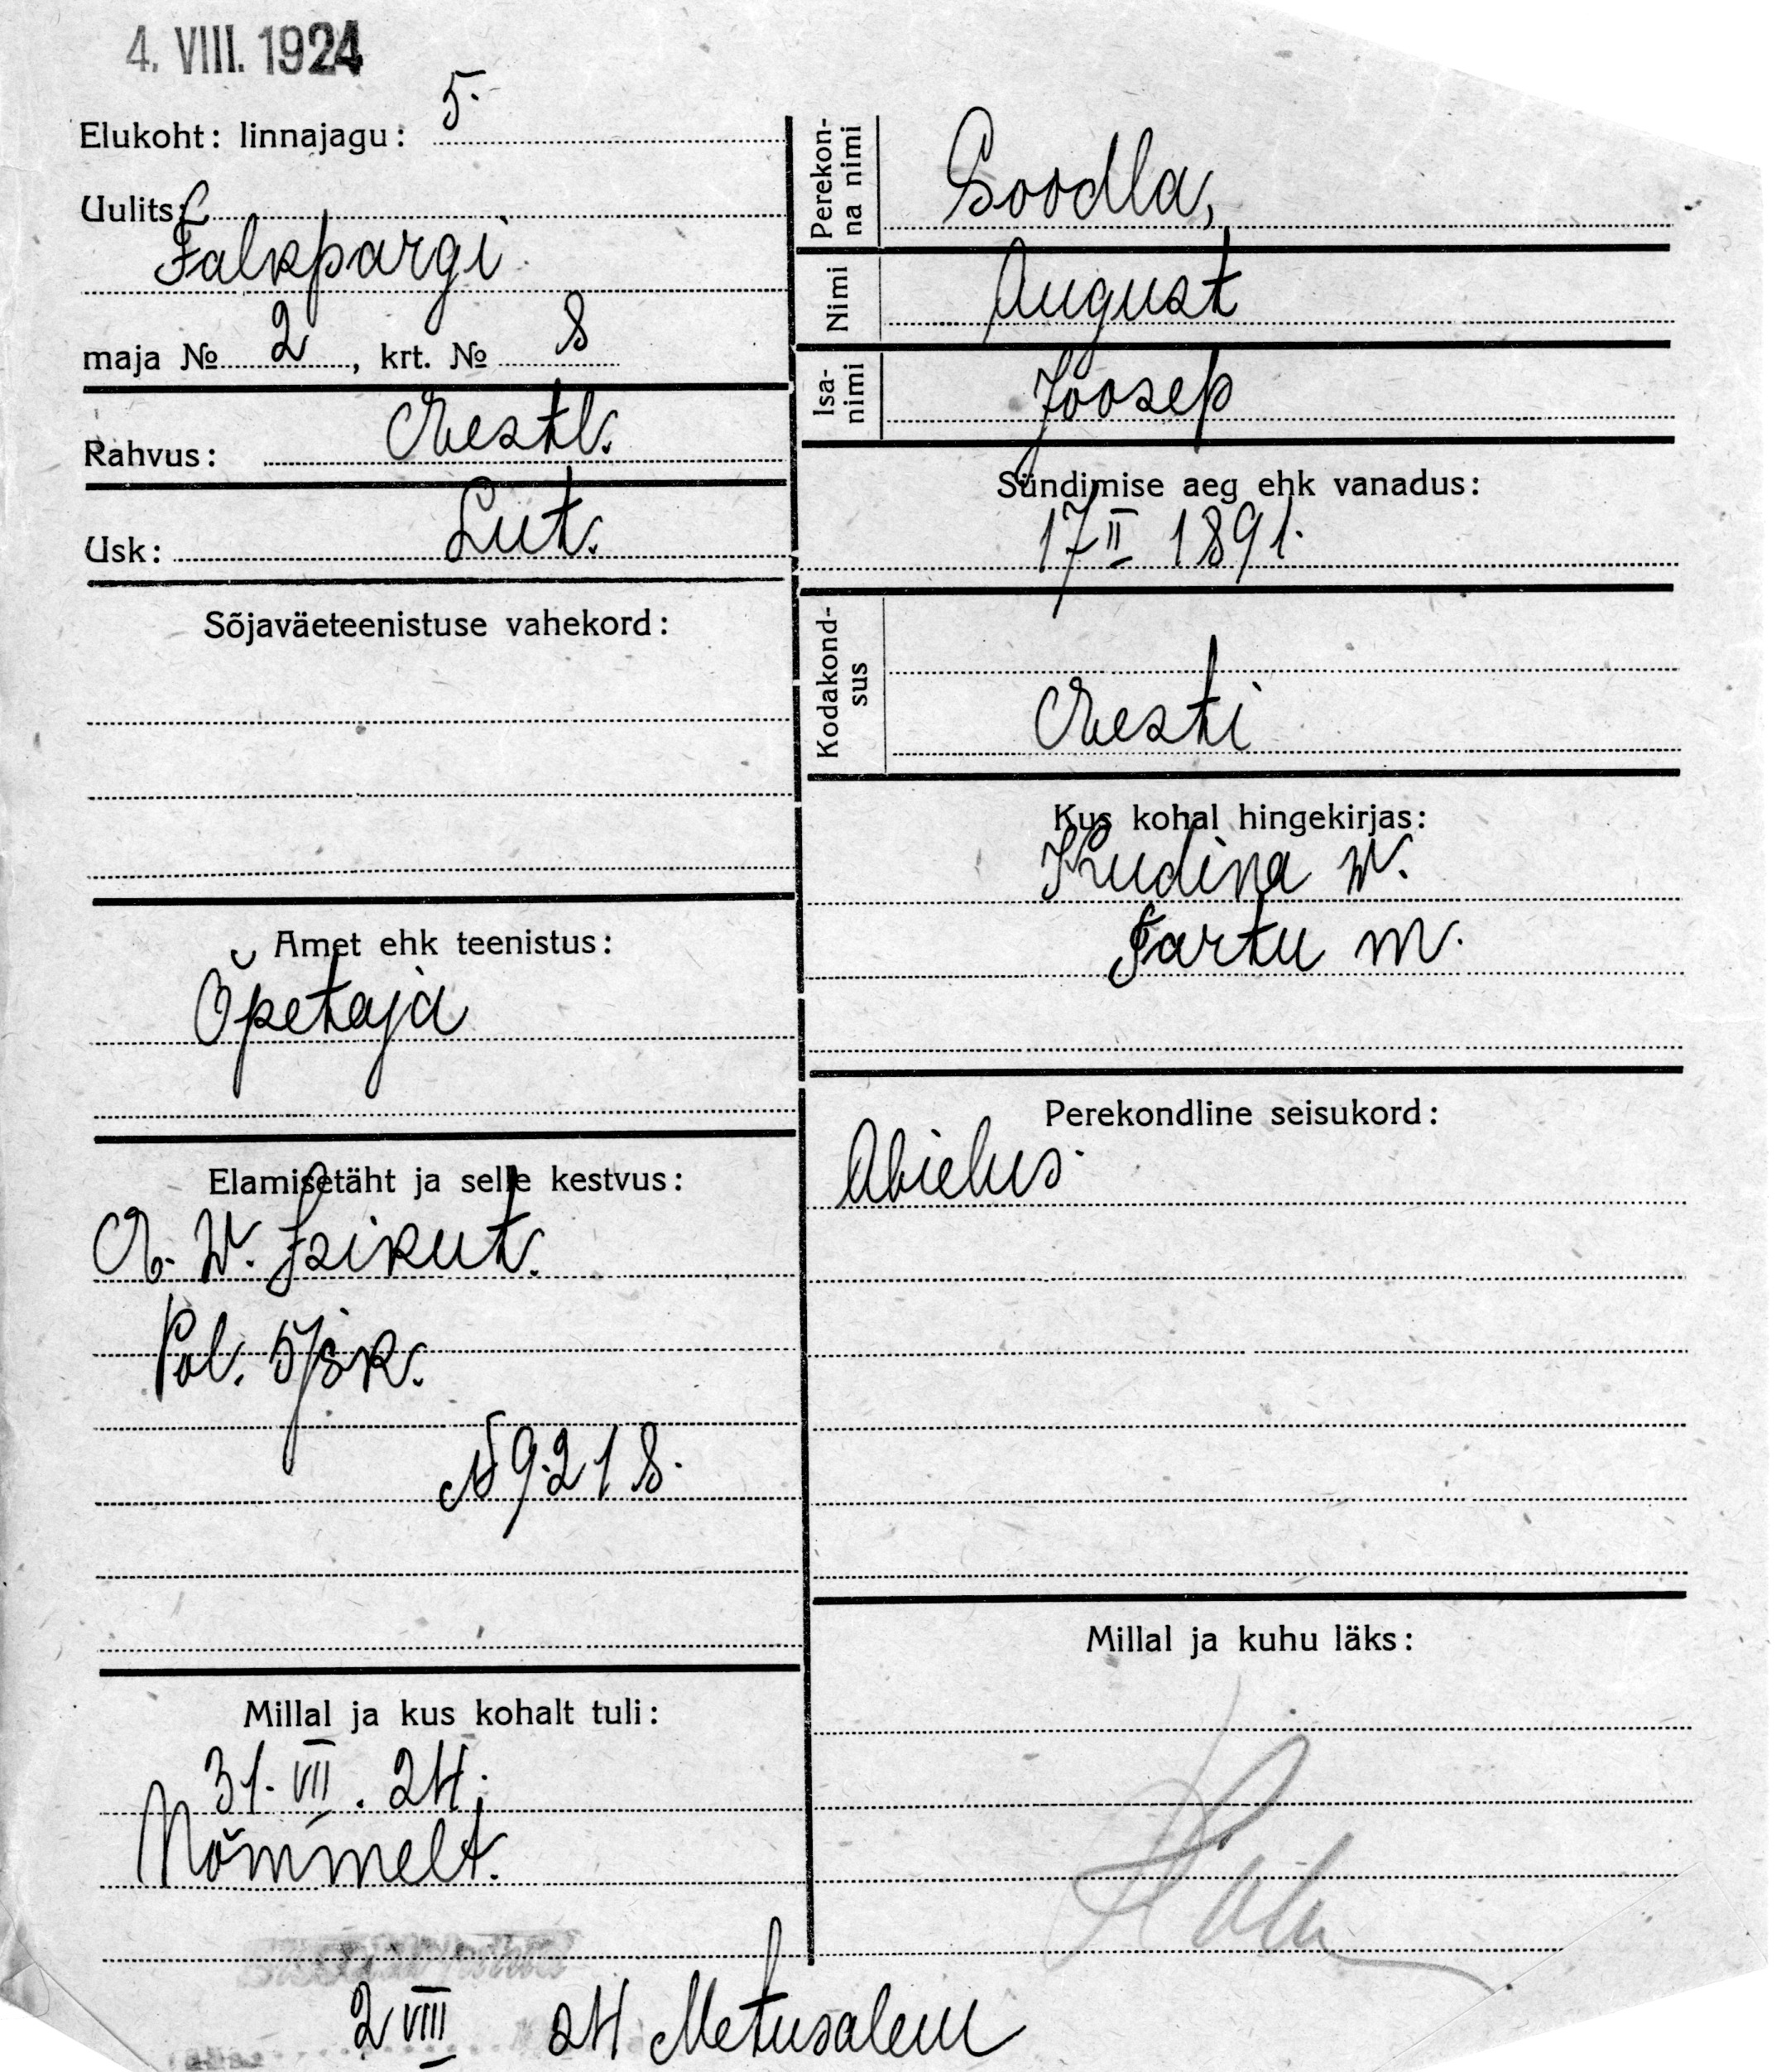 4. VIII. 1924
Elukoht: linnajagu: 5.
Uulits:
Falkpargi
maja № 2, krt. № 8
Rahvus: Eestl.
Usk: Lut.
Sõjaväeteenistuse vahekord:
Amet ehk teenistus:
Õpetaja
Elamisetäht ja selle kestvus:
E. W. Isikut.
Pol. 5/jsk.
N 9218.
Millal ja kus kohalt tuli:
31. VII. 24.
Nõmmelt.
Perekonna nimi Soodla,
Nimi August
Isanimi Joosep
Sündimise aeg ehk vanadus:
17 II 1891.
Kodakondsus
Eesti
Kus kohal hingekirjas:
Kudina w.
Tartu m.
Perekondline seisukord:
Abielus.
Millal ja kuhu läks:
2 VIII 24 Metusalem